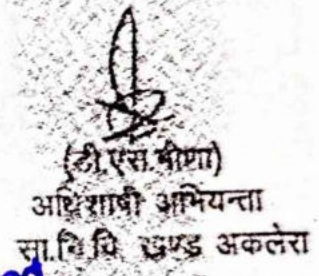 (डी.एस.मीणा)
अधिशाषी अभियन्ता
सा.नि.वि. खण्ड अकलेरा